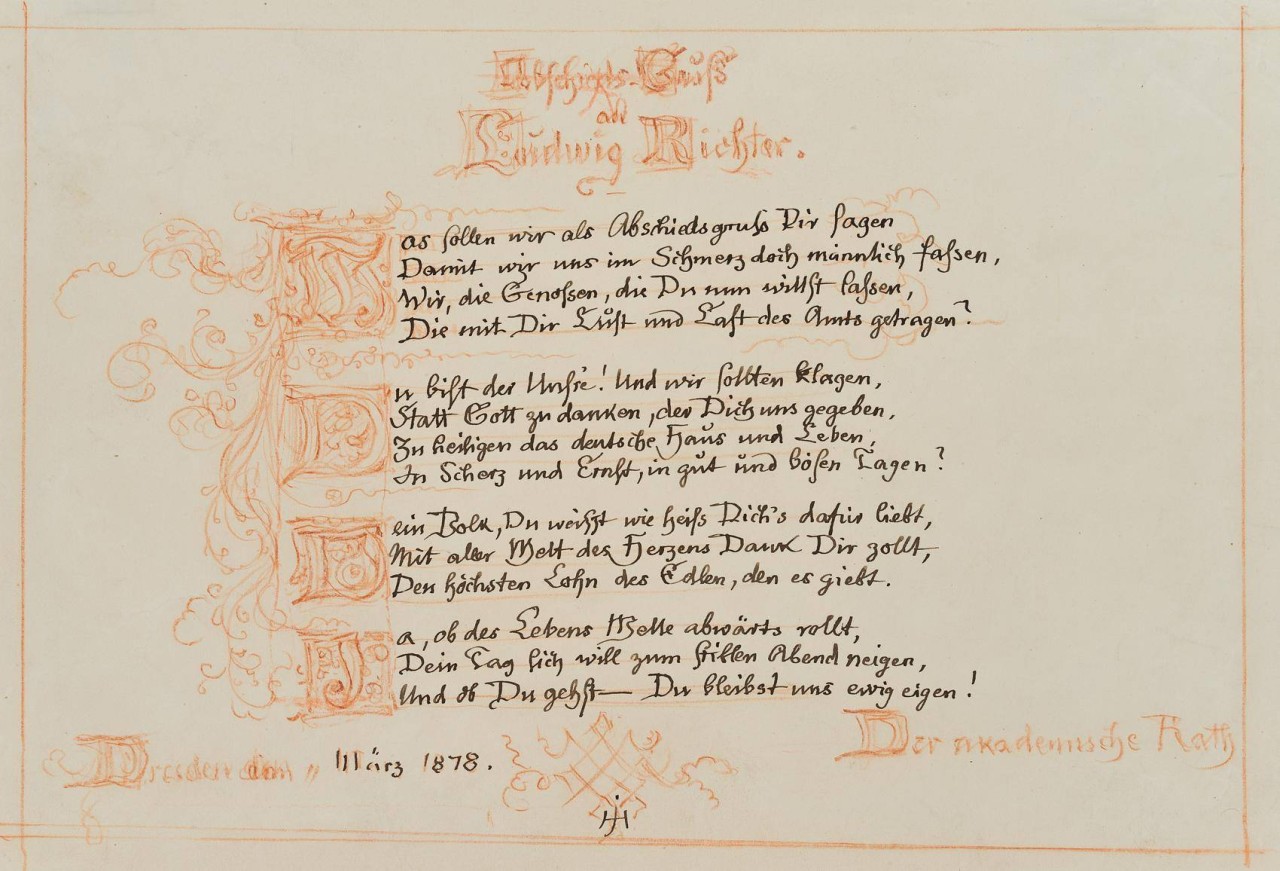 Abschieds-Gruß
an
Ludwig Richter.
Was sollen wir als Abschiedsgruss Dir sagen
Damit wir uns im Schmerz doch männlich fassen,
Wir, die Genossen, die Du nun willst lassen,
Die mit Dir Lust und Last des Amts getragen?
Du bist der Unsre! Und wir sollten klagen,
Statt Gott zu danken, der Dich uns gegeben,
Zu heiligen das deutsche Haus und Leben,
In Scherz und Ernst, in gut und bösen Tagen?
Dein Volk, Du weisst wie heiss Dich's dafür liebt,
Mit aller Welt des Herzens Dank Dir zollt,
Den höchsten Lohn des Edlen, den es giebt.
Ja, ob des Lebens Welle abwärts rollt,
Dein Tag sich will zum stillen Abend neigen,
Und ob Du gehst — Du bleibst uns ewig eigen!
Der akademische Rath
Dresden den " März 1878.